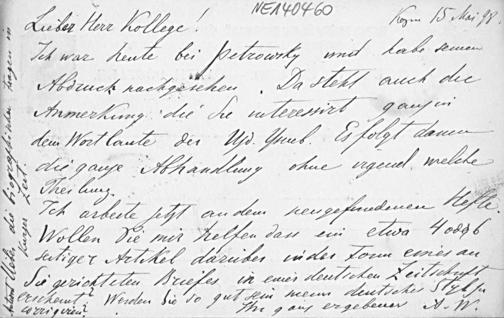 NEA40460
Lieber Herr Kollege! 15 Mai 98.
Ich war heute bei Petrowsky und habe seinen
Abdruck nachgesehen. Da steht auch die
Anmerkung die Sie interessirt ganz in
dem Wortlaute der Es folgt dann
die ganze Abhandlung ohne irgend welche
Theilung.
Ich arbeite jetzt an dem neugefundenen Hefte
Wollen Sie mir helfen dass ein etwa 4 oder 6
seitiger Artikel darüber in der Form eines an
Sie gerichteten Briefes in einer deutschen Zeitschrift
erscheint? Werden Sie so gut sein mein deutscher Styl zu
corrigieren? Ihr ganz ergebener A. W.
Antwort über die biographischen Fragen in
kurzer Zeit.